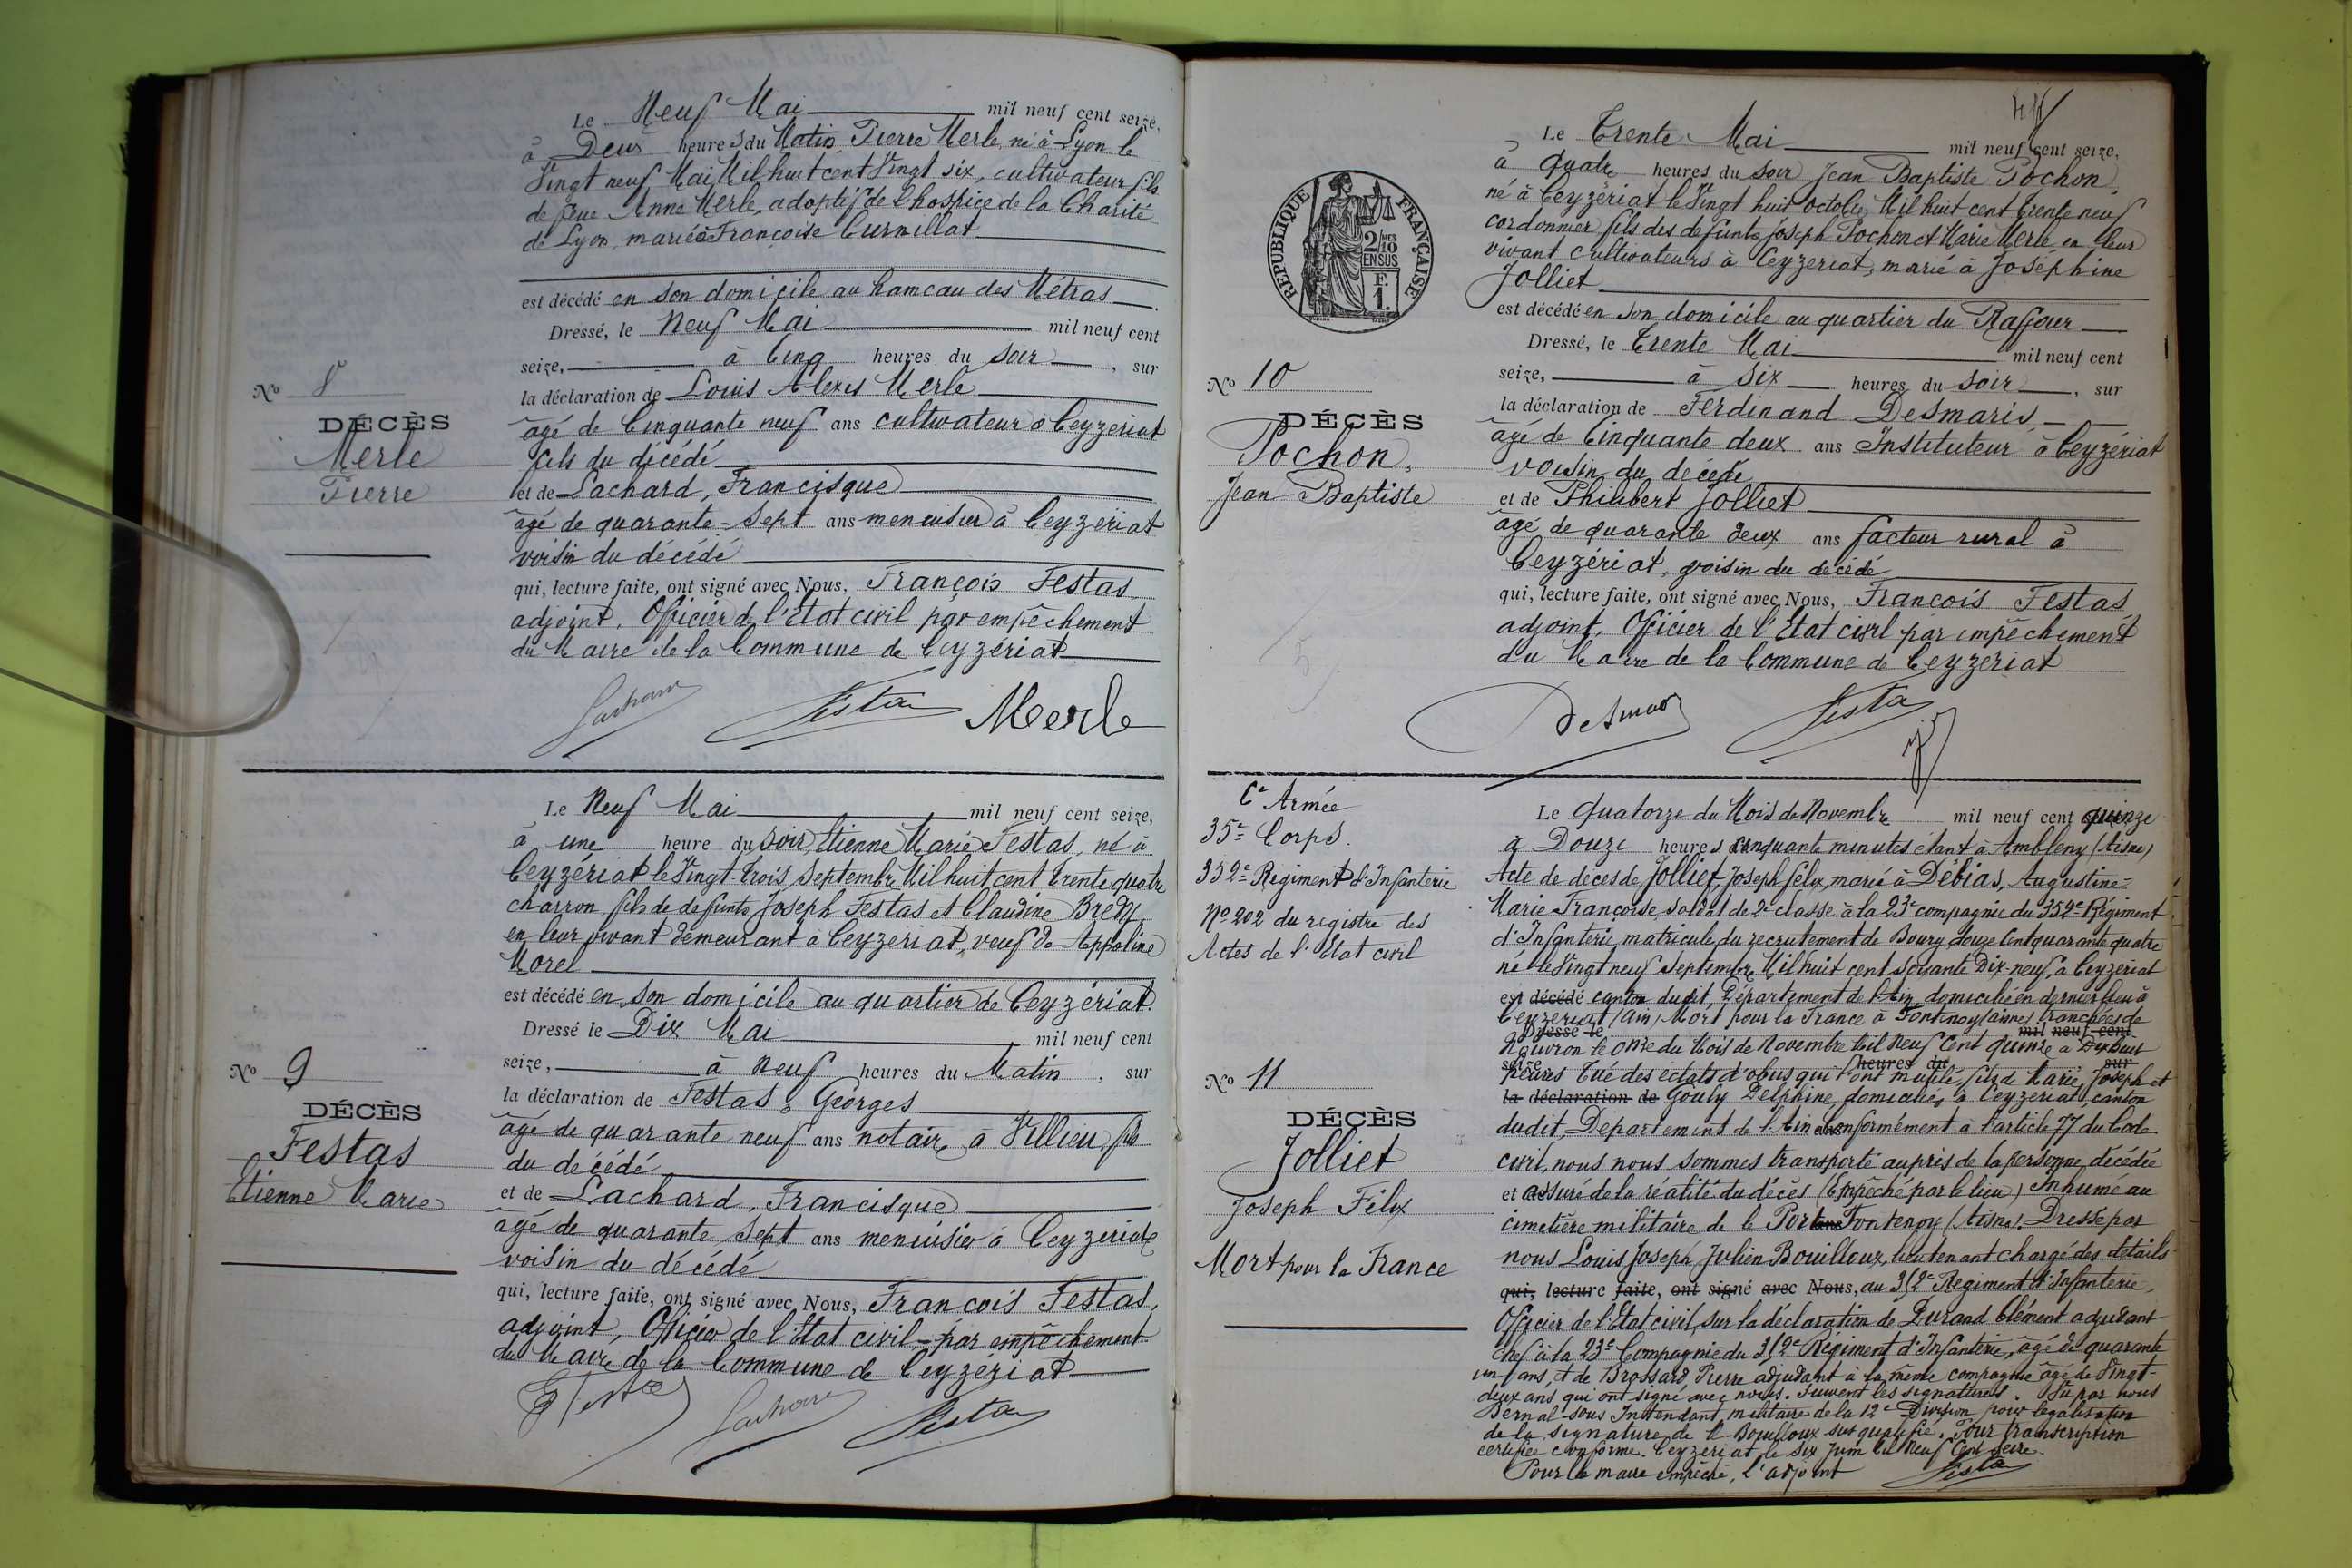 Le Neuf Mai mil neuf cent seize,
à Deux heures du Matin Pierre Merle, né à Lyon le
Vingt neuf Mai Mil huit cent Vingt six, cultivateur fils
de feue Anne Merle, adoptif de l'hospice de la Charité
de Lyon, marié à Françoise Curnillat
est décédé en son domicile au hameau des Métras
Dressé, le Neuf Mai mil neuf cent
seize, à Cinq heures du soir, sur
la déclaration de Louis Alexis Merle
âgé de Cinquante neuf ans cultivateur à Ceyzériat
fils du décédé
et de Lachard, Francisque
âgé de quarante-sept ans menuisier à Ceyzériat
voisin du décédé
qui, lecture faite, ont signé avec Nous, François Festas
adjoint, Officier de l'Etat civil par empêchement
du Maire de la Commune de Ceyzériat
Lachard Festas Merle
No 8
DÉCÈS
Merle
Pierre
Le Neuf Mai mil neuf cent seize,
à une heure du soir, Etienne Marie Festas, né à
Ceyzériat le Vingt-trois Septembre Mil huit cent trente quatre
charron, fils de defunts Joseph Festas et Claudine Bredy
en leur vivant demeurant à Ceyzériat, veuf de Appoline
Morel
est décédé en son domicile au quartier de Ceyzériat.
Dressé le Dix Mai mil neuf cent
seize, à neuf heures du Matin, sur
la déclaration de Festas, Georges
âgé de quarante neuf ans notaire à Villieu, fils
du décédé
et de Lachard, Francisque
âgé de quarante sept ans menuisier à Ceyzériat
voisin du décédé
qui, lecture faite, ont signé avec Nous, François Festas,
adjoint, Officier de l'Etat civil par empêchement
du Maire de la Commune de Ceyzériat
Lachard Festas
No 9
DÉCÈS
Festas
Etienne Marie
RÉPUBLIQUE FRANÇAISE
2/10 EN SUS
F. 1.
Le Trente Mai mil neuf cent seize,
à quatre heures du soir Jean Baptiste Pochon,
né à Ceyzériat le Vingt huit octobre Mil huit cent trente neuf
cordonnier, fils des defunts Joseph Pochon et Marie Merle en leur
vivant cultivateurs à Ceyzeriat, marié à Joséphine
Jolliet
est décédé en son domicile au quartier du Raffour
Dressé, le Trente Mai mil neuf cent
seize, à Six heures du soir, sur
la déclaration de Ferdinand Desmaris,
âgé de Cinquante deux ans Instituteur à Ceyzériat
voisin du décédé
et de Philibert Jolliet
âgé de quarante deux ans facteur rural à
Ceyzériat, voisin du décédé
qui, lecture faite, ont signé avec Nous, François Festas
adjoint, Officier de l'Etat civil par empêchement
du Maire de la Commune de Ceyzeriat
Desmaris Festas
No 10
DÉCÈS
Pochon,
Jean Baptiste
6e Armée
35e Corps.
352e Régiment d'Infanterie
No 202 du registre des
Actes de l'Etat civil
No 11
DÉCÈS
Jolliet
Joseph Félix
Mort pour la France
Le quatorze du Mois de Novembre mil neuf cent quinze
à Douze heures cinquante minutes étant à Ambleny (Aisne)
Acte de décès de Jolliet, Joseph Félix, marié à Débias, Augustine-
Marie Françoise, soldat de 2e classe à la 23e compagnie du 352e Régiment
d'Infanterie, matricule du recrutement de Bourg douze cent quarante quatre
né le Vingt neuf Septembre Mil huit cent soixante Dix-neuf, à Ceyzériat
est décédé canton dudit, Département de l'Ain, domicilié en dernier lieu à
Ceyzeriat (Ain), Mort pour la France à Fontenoy (aisne) tranchées de
Dressé le mil neuf cent
Nouvron le onze du Mois de Novembre Mil neuf Cent quinze à Dix huit
seize, heures du sur
heures Tué des eclats d'obus qui l'ont mutilé, fils de Marie, Joseph et
la déclaration de Gouly Delphine, domiciliés à Ceyzeriat, canton
dudit, Département de l'Ain Conformément à l'article 77 du Code
civil, nous nous sommes transporté auprès de la personne décédée
et assuré de la réalité du décès (Empêché par le lieu) Inhumé au
cimetière militaire de le Port Fontenoy (Aisne). Dressé par
nous Louis Joseph Julien Bouilloux, lieutenant chargé des détails
qui, lecture faite, ont signé avec Nous, au 352e Régiment d'Infanterie,
Officier de l'Etat civil, sur la déclaration de Durand Clément adjudant
chef à la 23e Compagnie du 352e Régiment d'Infanterie, âgé de quarante
un ans, et de Brossard Pierre adjudant à la même compagnie âgé de Vingt-
deux ans qui ont signé avec nous. Suivent les signatures. Vu par nous
Bernal sous Intendant militaire de la 12e Division pour legalisation
de la signature de M Bouilloux sus qualifié. Pour transcription
certifiée conforme. Ceyzeriat le six Juin Mil neuf Cent seize.
Pour le maire empêché, l'adjoint Festas